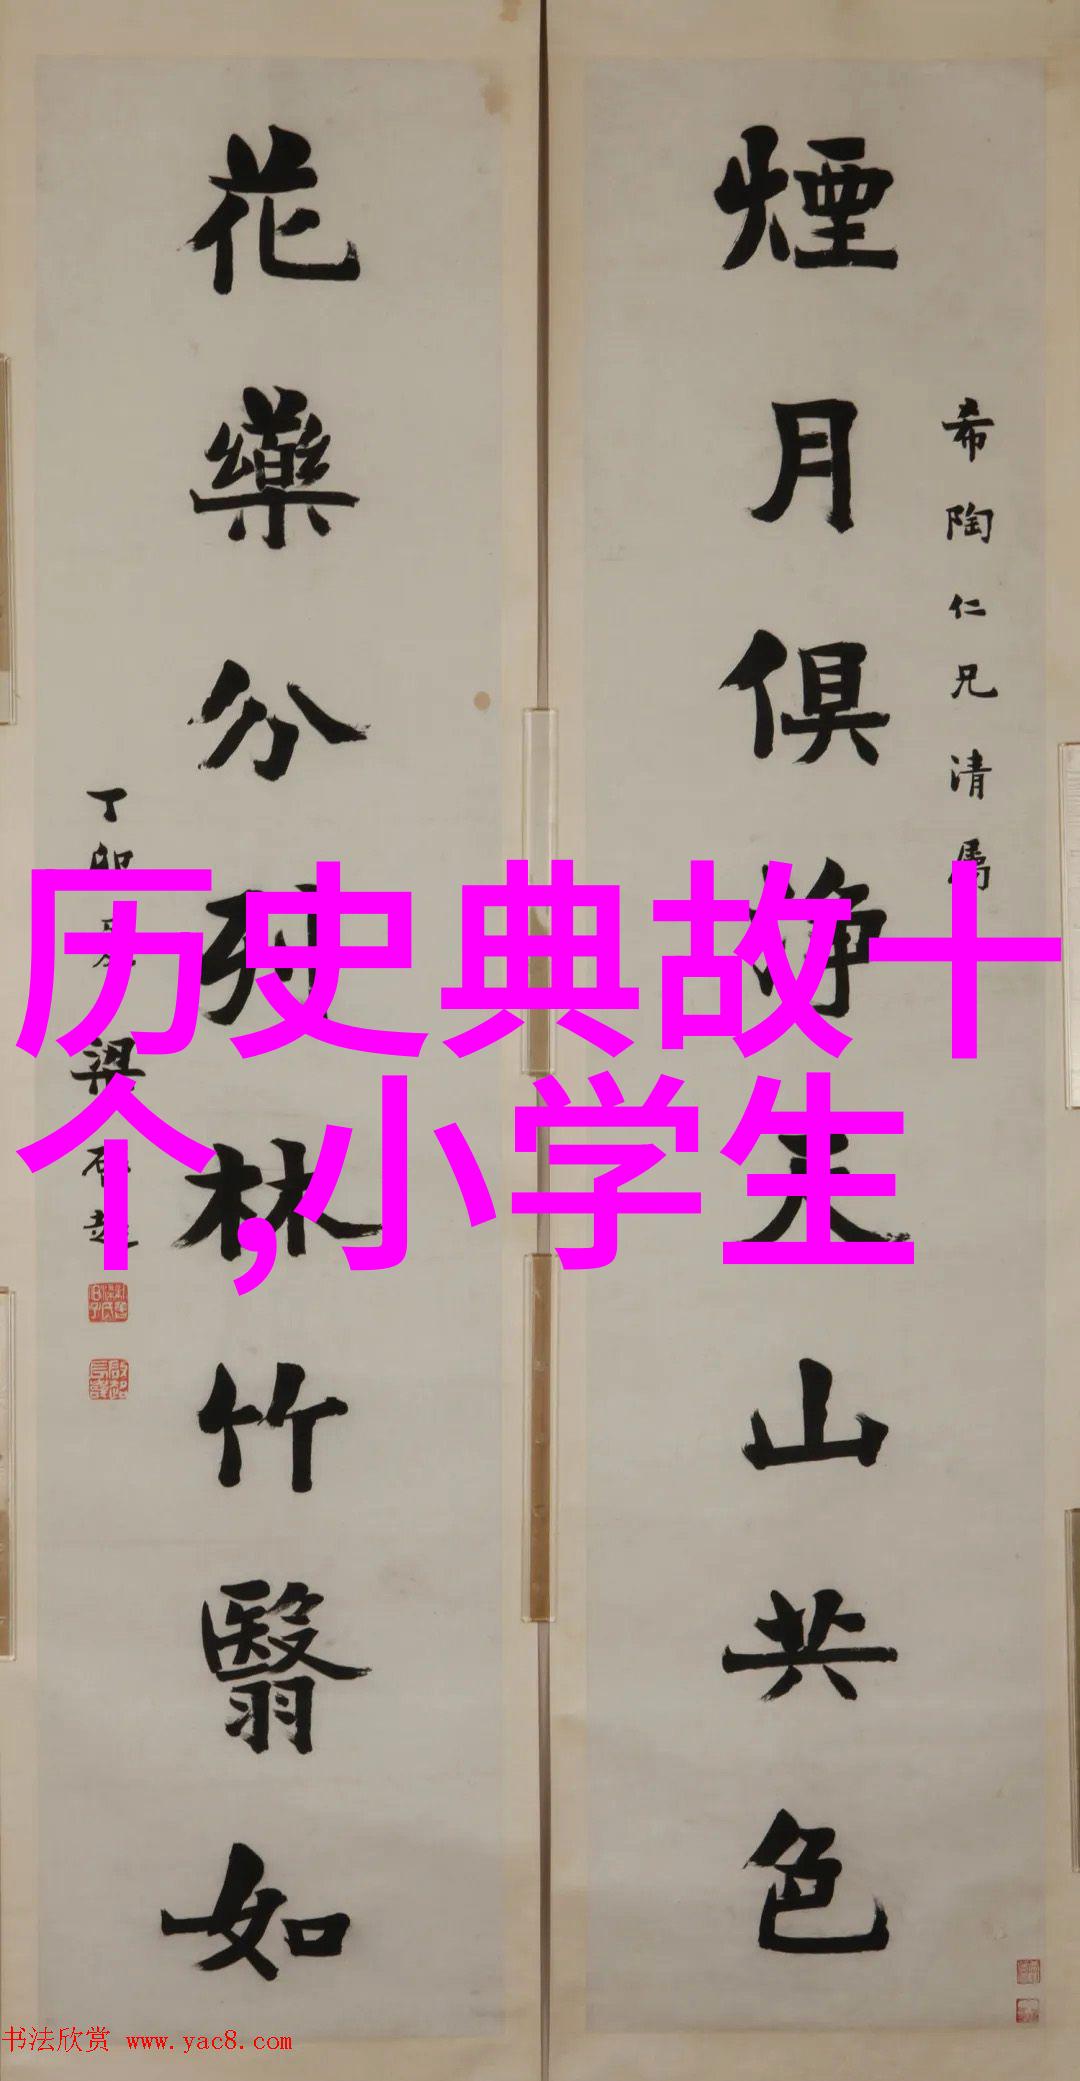 煙月俱静天山共色
希陶仁兄清属
花藥分列林竹翳如
丁卯 梁啓超
历史典故十
个,小学生
书法欣赏 www.yac8.com